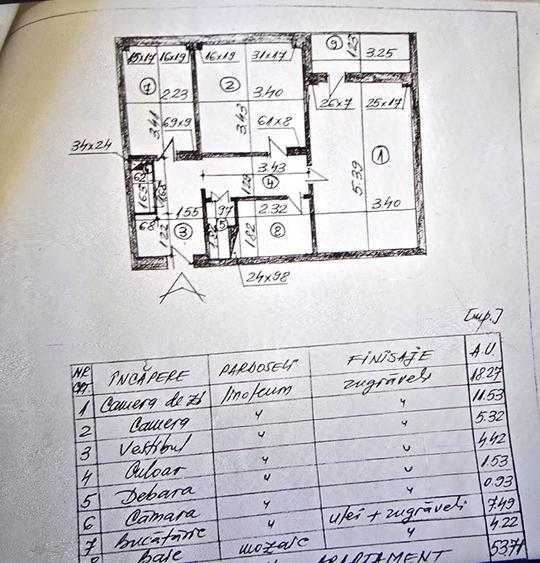 15x17 16x19 16x19 31x17 9 1.23 3.25
7 2 26x7 25x17
2.23 3.40
3.41 69x9 3.43 61x8 1
34x24
3.43 5.39
1.63 1.28 4 3.40
1.55 97 2.32
68 3 5 8
1.22 1.82 1.82
24x98
[mp.]
NR CRT ÎNCĂPERE PARDOSELI FINISAJE A.U.
1 Camera de zi linoleum zugrăveli 18.27
2 Camera " " 11.53
3 Vestibul " " 5.32
4 Culoar " " 4.42
5 Debara " " 1.53
6 Cămara " " 0.93
7 Bucătărie " ulei + zugrăveli 7.49
8 Baie mozaic " 4.22
APARTAMENT 53.71